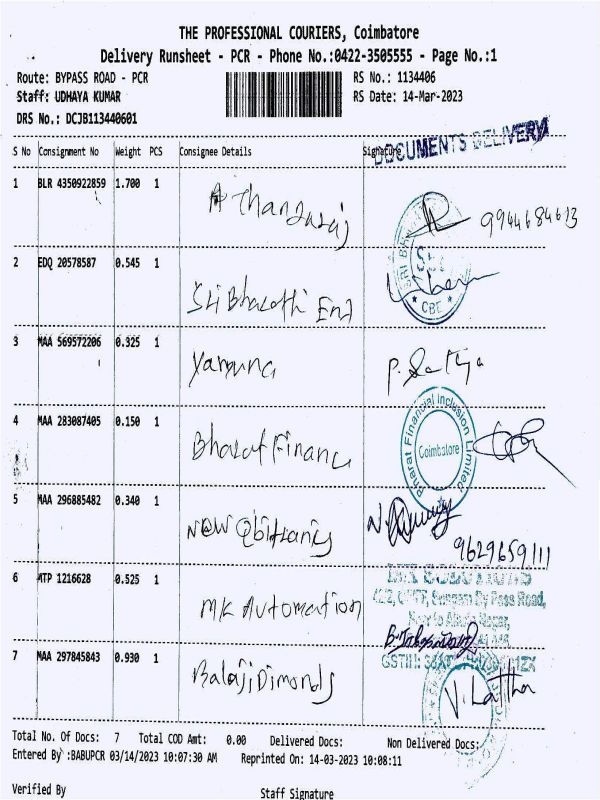 THE PROFESSIONAL COURIERS, Coimbatore
Delivery Runsheet - PCR - Phone No.:0422-3505555 - Page No.:1
Route: BYPASS ROAD - PCR RS No.: 1134406
Staff: UDHAYA KUMAR RS Date: 14-Mar-2023
DRS No.: DCJB113440601
DOCUMENTS DELIVERY
S No Consignment No Weight PCS Consignee Details Signature
1 BLR 4350922859 1.700 1
A Thangaraj 9944684613
2 EDQ 20578587 0.545 1
Sri Bharathi Ent
SRI BH
CBE
3 MAA 569572206 0.325 1
Yamuna P. Sathya
4 MAA 283087405 0.150 1
Bharat Finance
Bharat Financial Inclusion Limited
Coimbatore
5 MAA 296885482 0.340 1
New 9629659111
6 ATP 1216628 0.525 1
MK Automation
MK SOLUTIONS
Pass Road,
7 MAA 297845843 0.930 1
GSTIN:
Balaji Dimonds V. Latha
Total No. Of Docs: 7 Total COD Amt: 0.00 Delivered Docs: Non Delivered Docs:
Entered By :BABUPCR 03/14/2023 10:07:30 AM Reprinted On: 14-03-2023 10:08:11
Verified By Staff Signature